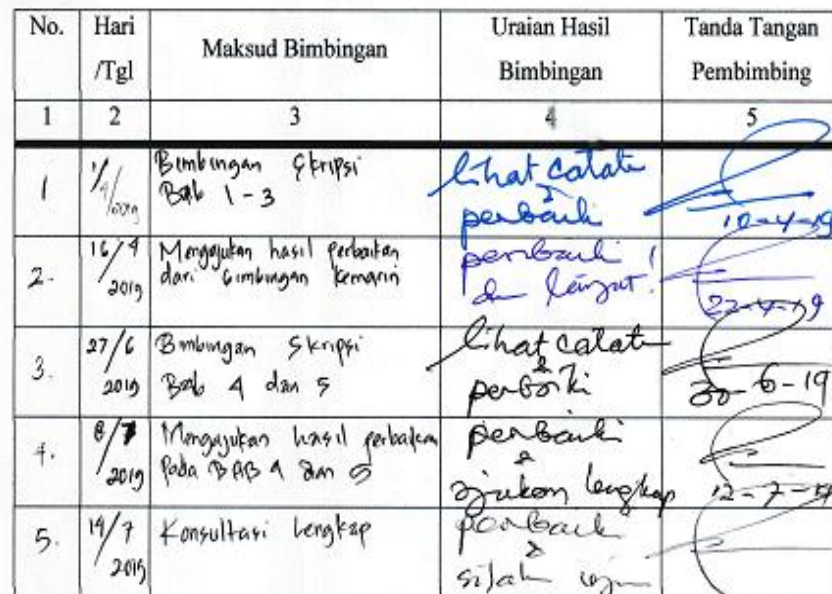 No. Hari /Tgl Maksud Bimbingan Uraian Hasil Bimbingan Tanda Tangan Pembimbing
1 2 3 4 5
1 1/4/2019 Bimbingan Skripsi Bab 1 - 3 lihat catat & perbaiki 10-4-19
2. 16/4 2019 Mengajukan hasil perbaikan dari bimbingan kemarin perbaiki ! dan lanjut! 22-4-19
3. 27/6 2019 Bimbingan Skripsi Bab 4 dan 5 lihat catat & perbaiki 30-6-19
4. 8/7 2019 Mengajukan hasil perbaikan pada BAB 4 dan 5 perbaiki & ajukan lengkap 12-7-19
5. 19/7 2019 Konsultasi lengkap perbaiki &